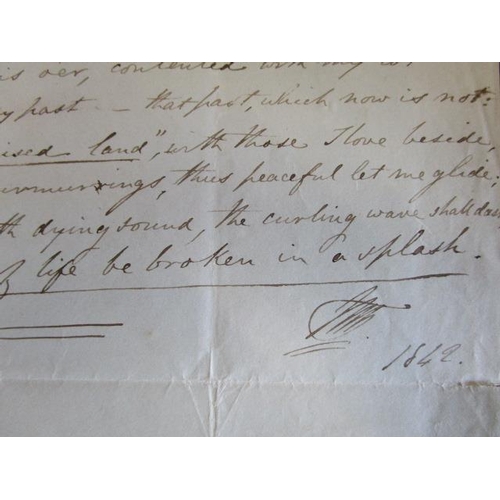 is oer, contented with my lot
past — that past, which now is not.
ised land", with those I love beside,
urmurings, thus peaceful let me glide.
th dying sound, the curling wave shall das
life be broken in a splash.
1842.